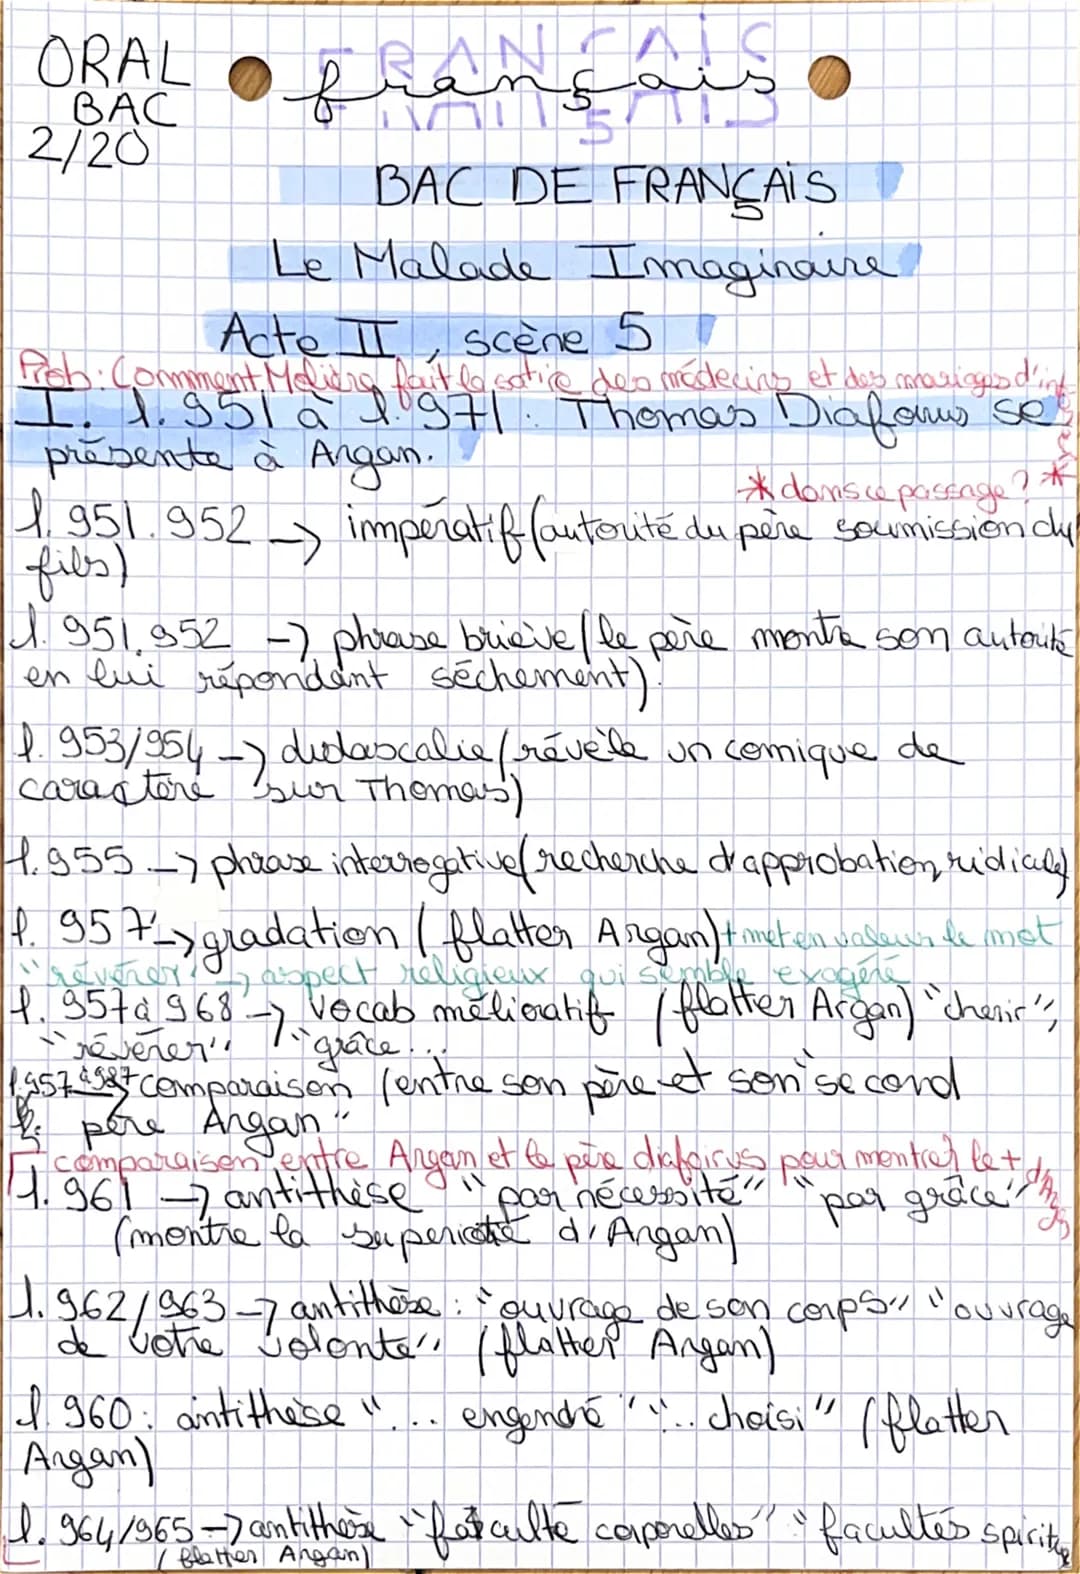 ORAL
BAC
2/20
FRANÇAIS
français
BAC DE FRANÇAIS
Le Malade Imaginaire
Acte II, scène 5
Prob: Comment Molière fait la satire des médecins et des mariages d'intérêts *
* dans ce passage?
I. l.951 à l.971. Thomas Diafoirus se
présente à Argan.
l.951.952 -> impératif (autorité du père soumission du
fils)
l.951.952 -> phrase briève (le père montre son autorité
en lui répondant séchement).
l.953/954 -> didascalie (révèle un comique de
caractère sur Thomas)
l.955 -> phrase interrogative (recherche d'approbation, ridicule)
l.957 -> gradation (flatter Argan) + met en valeur le mot
"révérer" -> aspect religieux qui semble exagéré
l.957 à 968 -> vocab mélioratif (flatter Argan) "cherir",
"révérer", "grâce...
l.957 à 987 -> comparaison (entre son père et son "second
père Argan"
comparaison entre Argan et le père diafoirus pour montrer le + d'Arg
l.961 -> antithèse "par nécessité" "par grâce"
(montre la superiorité d'Argan)
l.962/963 -> antithèse: "ouvrage de son corps" "ouvrage
de votre volonté" (flatter Argan)
l.960: antithèse "... engendré" "... choisi" (flatter
Argan)
l.964/965 -> antithèse "faculté corporelles" "facultés spiritu
(flatter Argan)